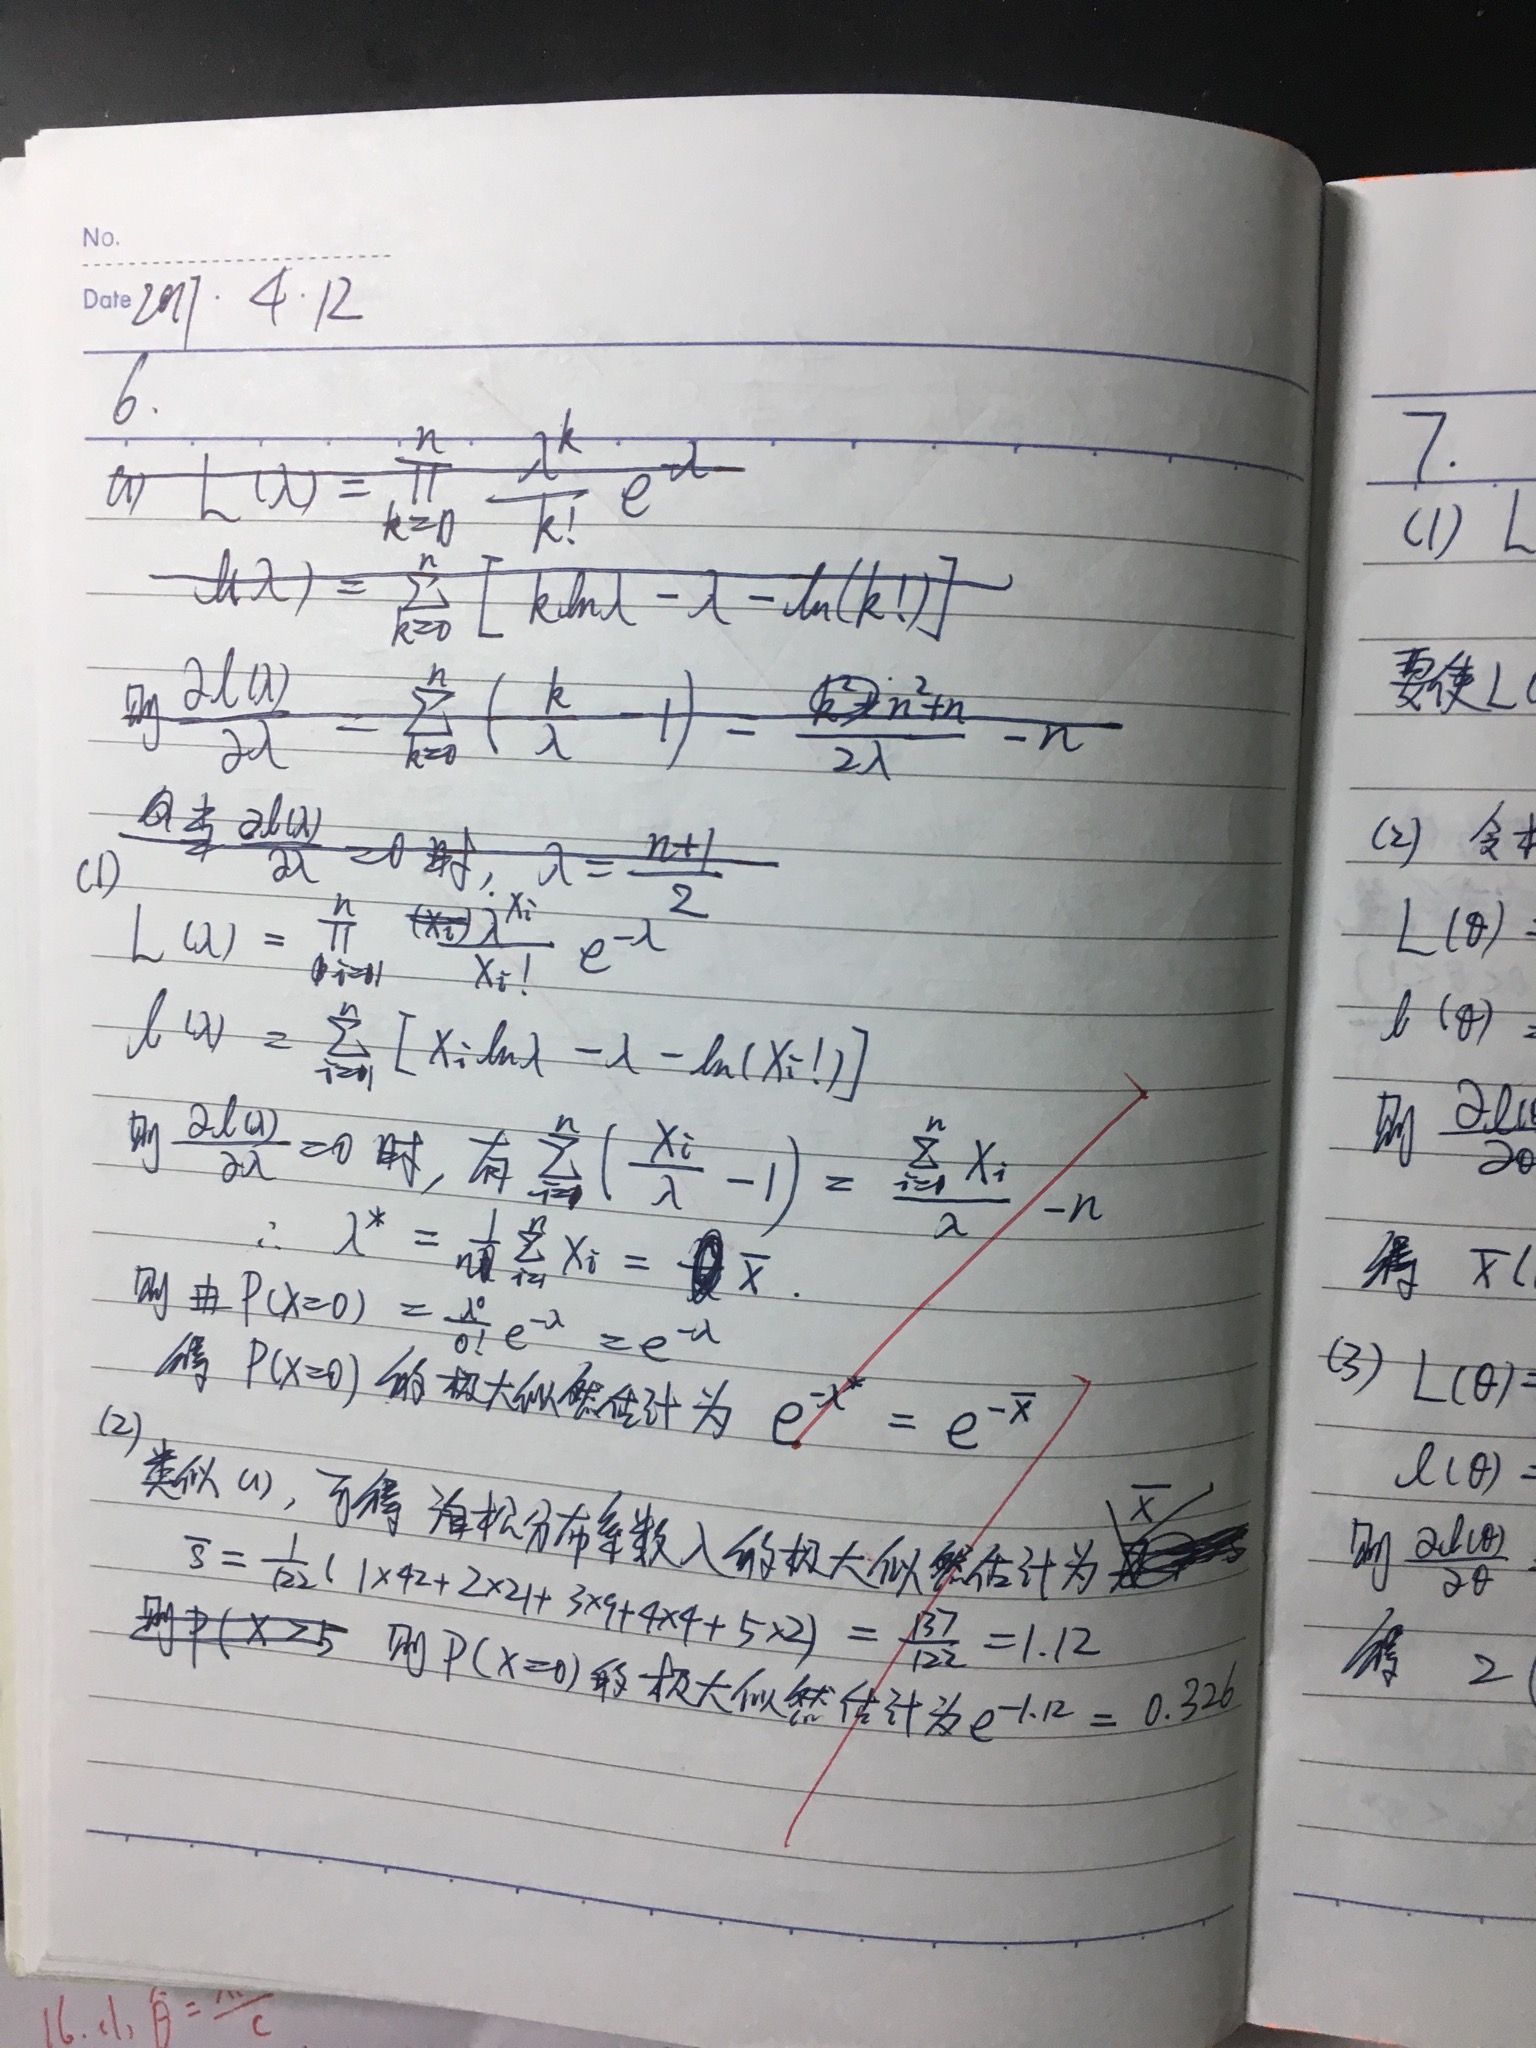 No.
Date 2017.4.12
6.
(1) L(λ) = ∏_{k=0}^{n} λ^k/k! e^{-λ}
l(λ) = ∑_{k=0}^{n} [k lnλ - λ - ln(k!)]
则 ∂l(λ)/∂λ = ∑_{k=0}^{n} (k/λ - 1) = (n²+n)/2λ - n
∂l(λ)/∂λ = 0 时, λ = (n+1)/2
(1)
L(λ) = ∏_{i=1}^{n} λ^{xi}/xi! e^{-λ}
l(λ) = ∑_{i=1}^{n} [xi lnλ - λ - ln(xi!)]
则 ∂l(λ)/∂λ = 0 时, 有 ∑_{i=1}^{n} (xi/λ - 1) = ∑_{i=1}^{n} xi/λ - n
∴ λ* = 1/n ∑_{i=1}^{n} xi = x̄.
则由 P(X=0) = λ⁰/0! e^{-λ} = e^{-λ}
得 P(X=0) 的极大似然估计为 e^{-λ*} = e^{-x̄}
(2)
类似(1), 可得泊松分布系数λ的极大似然估计为 x̄
s̄ = 1/122 (1×42+2×21+3×9+4×4+5×2) = 137/122 = 1.12
则P(X≥5 则P(X=0)的极大似然估计为e^{-1.12} = 0.326
7.
(1) L
要使L(
(2) 令
L(θ) =
l(θ) =
则 ∂l(θ)/∂θ
得 x̄(
(3) L(θ) =
l(θ) =
则 ∂l(θ)/∂θ =
得 2(
16.